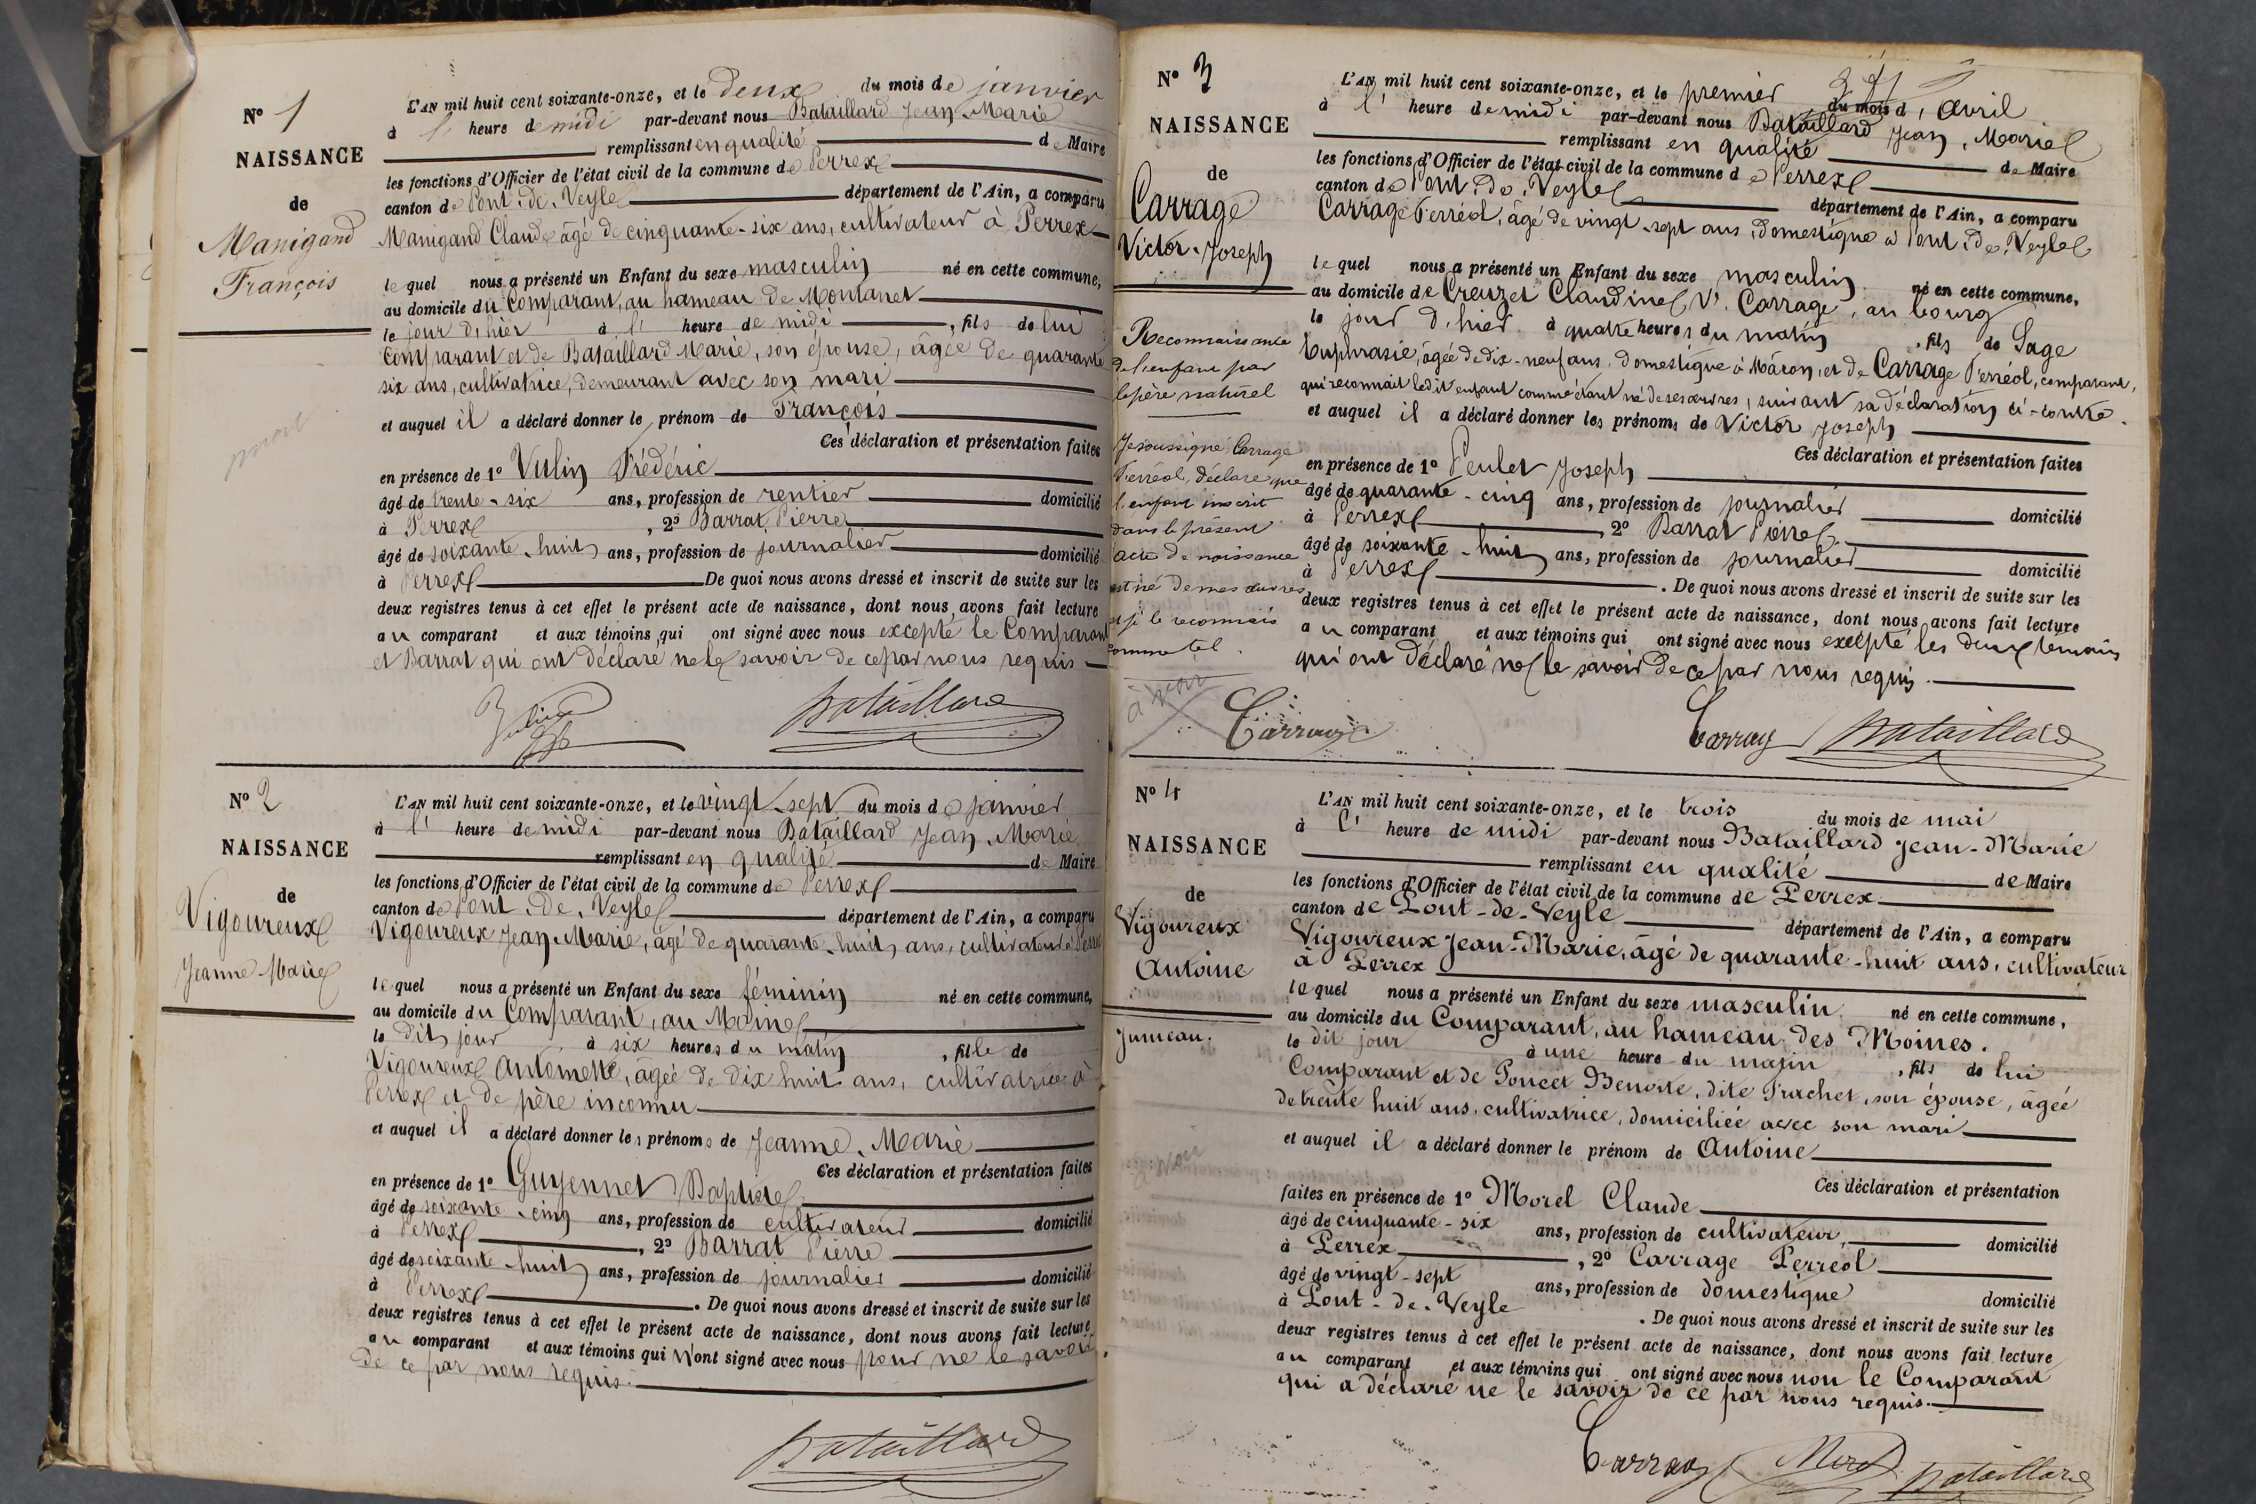 N° 1
NAISSANCE
de
Manigand
François
L'AN mil huit cent soixante-onze, et le deux du mois de janvier
à l' heure de midi par-devant nous Bataillard Jean Marie
remplissant en qualité de Maire
les fonctions d'Officier de l'état civil de la commune de Perrex
canton de Pont-de-Veyle département de l'Ain, a comparu
Manigand Claude âgé de cinquante-six ans, cultivateur à Perrex
lequel nous a présenté un Enfant du sexe masculin né en cette commune,
au domicile du Comparant, au hameau de Montanet
le jour d'hier à l' heure de midi, fils de lui
Comparant et de Bataillard Marie, son épouse, âgée de quarante
six ans, cultivatrice, demeurant avec son mari
et auquel il a déclaré donner le prénom de François
Ces déclaration et présentation faites
en présence de 1° Vulin Frédéric
âgé de trente-six ans, profession de rentier domicilié
à Perrex, 2° Barrat Pierre
âgé de soixante-huit ans, profession de journalier domicilié
à Perrex De quoi nous avons dressé et inscrit de suite sur les
deux registres tenus à cet effet le présent acte de naissance, dont nous avons fait lecture
au comparant et aux témoins qui ont signé avec nous excepté le Comparant
et Barrat qui ont déclaré ne le savoir de ce par nous requis
Bataillard
N° 2
NAISSANCE
de
Vigoureux
Jeanne-Marie
L'AN mil huit cent soixante-onze, et le vingt-sept du mois de janvier
à l' heure de midi par-devant nous Bataillard Jean-Marie
remplissant en qualité de Maire
les fonctions d'Officier de l'état civil de la commune de Perrex
canton de Pont-de-Veyle département de l'Ain, a comparu
Vigoureux Jean-Marie, âgé de quarante-huit ans, cultivateur à Perrex
lequel nous a présenté un Enfant du sexe féminin né en cette commune,
au domicile du Comparant, au Moine
le dit jour à six heures du matin, fille de
Vigoureux Antoinette, âgée de dix huit ans, cultivatrice à
Perrex et de père inconnu
et auquel il a déclaré donner les prénoms de Jeanne-Marie
Ces déclaration et présentation faites
en présence de 1° Guyennet Baptiste
âgé de soixante-cinq ans, profession de cultivateur domicilié
à Perrex, 2° Barrat Pierre
âgé de soixante-huit ans, profession de journalier domicilié
à Perrex. De quoi nous avons dressé et inscrit de suite sur les
deux registres tenus à cet effet le présent acte de naissance, dont nous avons fait lecture
au comparant et aux témoins qui n'ont signé avec nous pour ne le savoir
de ce par nous requis.
Bataillard
N° 3
NAISSANCE
de
Carrage
Victor-Joseph
Reconnaissance
de l'enfant par
le père naturel
Je soussigné Carrage
Perréol, déclare que
l'enfant inscrit
dans le présent
acte de naissance
est né de mes œuvres
et je le reconnais
comme tel.
Carrage
L'AN mil huit cent soixante-onze, et le premier du mois d'Avril
à l' heure de midi par-devant nous Bataillard Jean-Marie
remplissant en qualité de Maire
les fonctions d'Officier de l'état civil de la commune de Perrex
canton de Pont-de-Veyle département de l'Ain, a comparu
Carrage Perréol, âgé de vingt-sept ans, domestique à Pont-de-Veyle
lequel nous a présenté un Enfant du sexe masculin né en cette commune,
au domicile de Creuzet Claudine Vᵉ Carrage, au bourg
le jour d'hier à quatre heures du matin, fils de Sage
Euphrasie, âgée de dix-neuf ans, domestique à Mâcon, et de Carrage Perréol, comparant,
qui reconnait ledit enfant comme étant né de ses œuvres, suivant sa déclaration ci-contre.
et auquel il a déclaré donner les prénoms de Victor Joseph
Ces déclaration et présentation faites
en présence de 1° Peulet Joseph
âgé de quarante-cinq ans, profession de journalier domicilié
à Perrex, 2° Barrat Pierre
âgé de soixante-huit ans, profession de journalier domicilié
à Perrex. De quoi nous avons dressé et inscrit de suite sur les
deux registres tenus à cet effet le présent acte de naissance, dont nous avons fait lecture
au comparant et aux témoins qui ont signé avec nous excepté les deux témoins
qui ont déclaré ne le savoir de ce par nous requis.
Carrage Bataillard
N° 4
NAISSANCE
de
Vigoureux
Antoine
Jumeau.
L'AN mil huit cent soixante-onze, et le trois du mois de mai
à l' heure de midi par-devant nous Bataillard Jean-Marie
remplissant en qualité de Maire
les fonctions d'Officier de l'état civil de la commune de Perrex
canton de Pont-de-Veyle département de l'Ain, a comparu
Vigoureux Jean-Marie, âgé de quarante-huit ans, cultivateur
à Perrex
lequel nous a présenté un Enfant du sexe masculin né en cette commune,
au domicile du Comparant, au hameau des Moines.
le dit jour à une heure du matin, fils de lui
Comparant et de Poncet Benoite, dite Trachet, son épouse, agée
de trente huit ans, cultivatrice, domiciliée avec son mari
et auquel il a déclaré donner le prénom de Antoine
Ces déclaration et présentation
faites en présence de 1° Morel Claude
âgé de cinquante-six ans, profession de cultivateur, domicilié
à Perrex, 2° Carrage Perréol
âgé de vingt-sept ans, profession de domestique domicilié
à Pont-de-Veyle. De quoi nous avons dressé et inscrit de suite sur les
deux registres tenus à cet effet le présent acte de naissance, dont nous avons fait lecture
au comparant et aux témoins qui ont signé avec nous non le Comparant
qui a déclaré ne le savoir de ce par nous requis.
Carrage Morel Bataillard